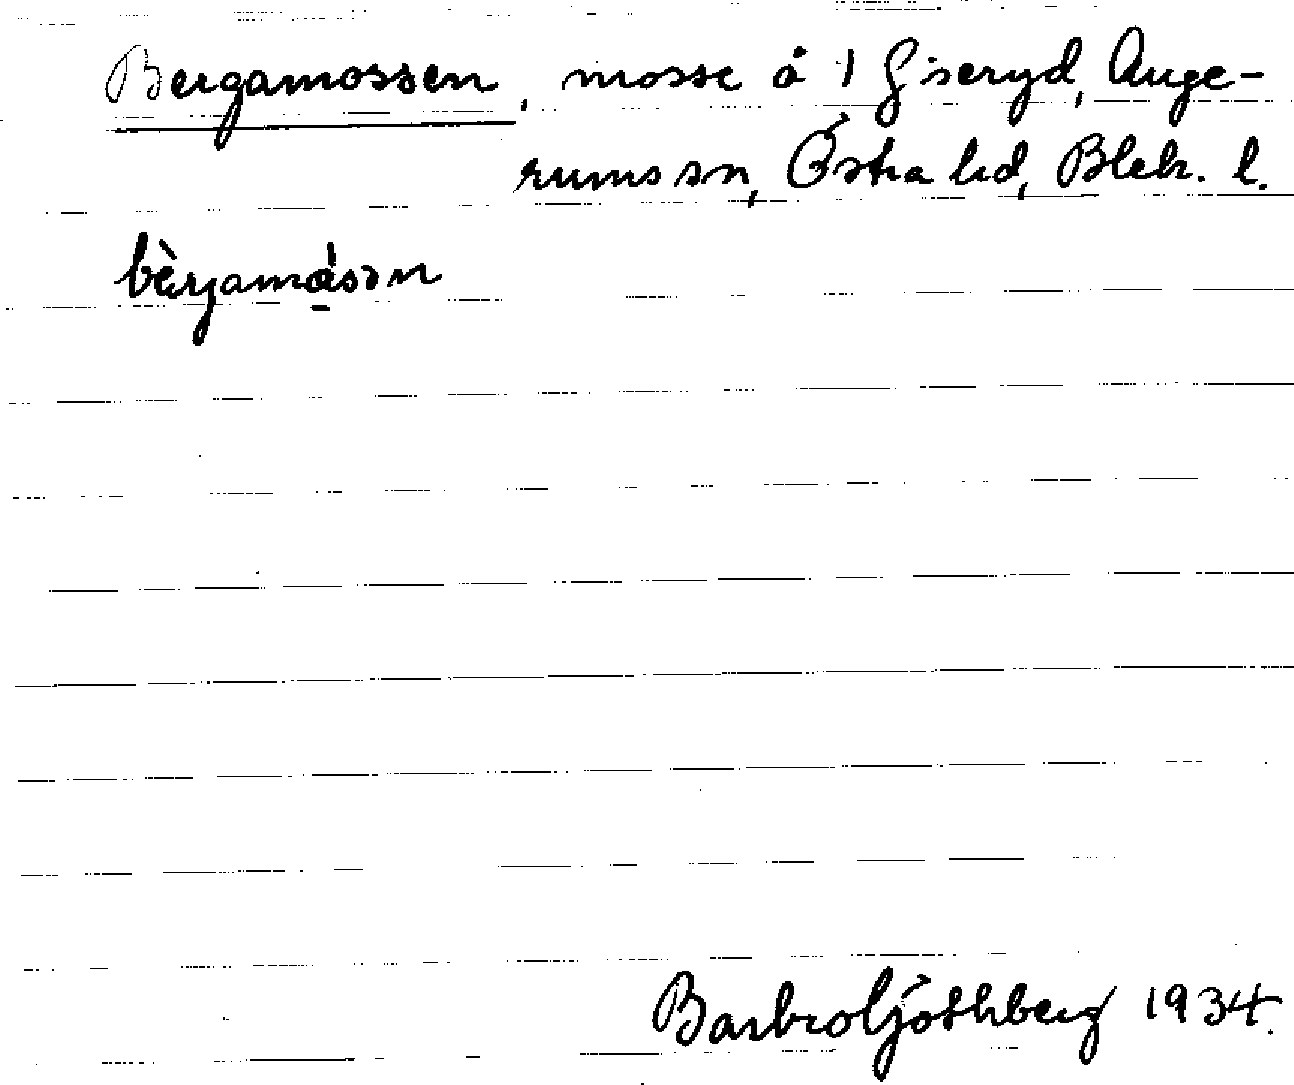 Bergamossen, mosse å 1 Giseryd, Auge-
rums sn, Östra hd, Blek. l.
bèrjamå̀sən
Barbro Göthberg 1934.